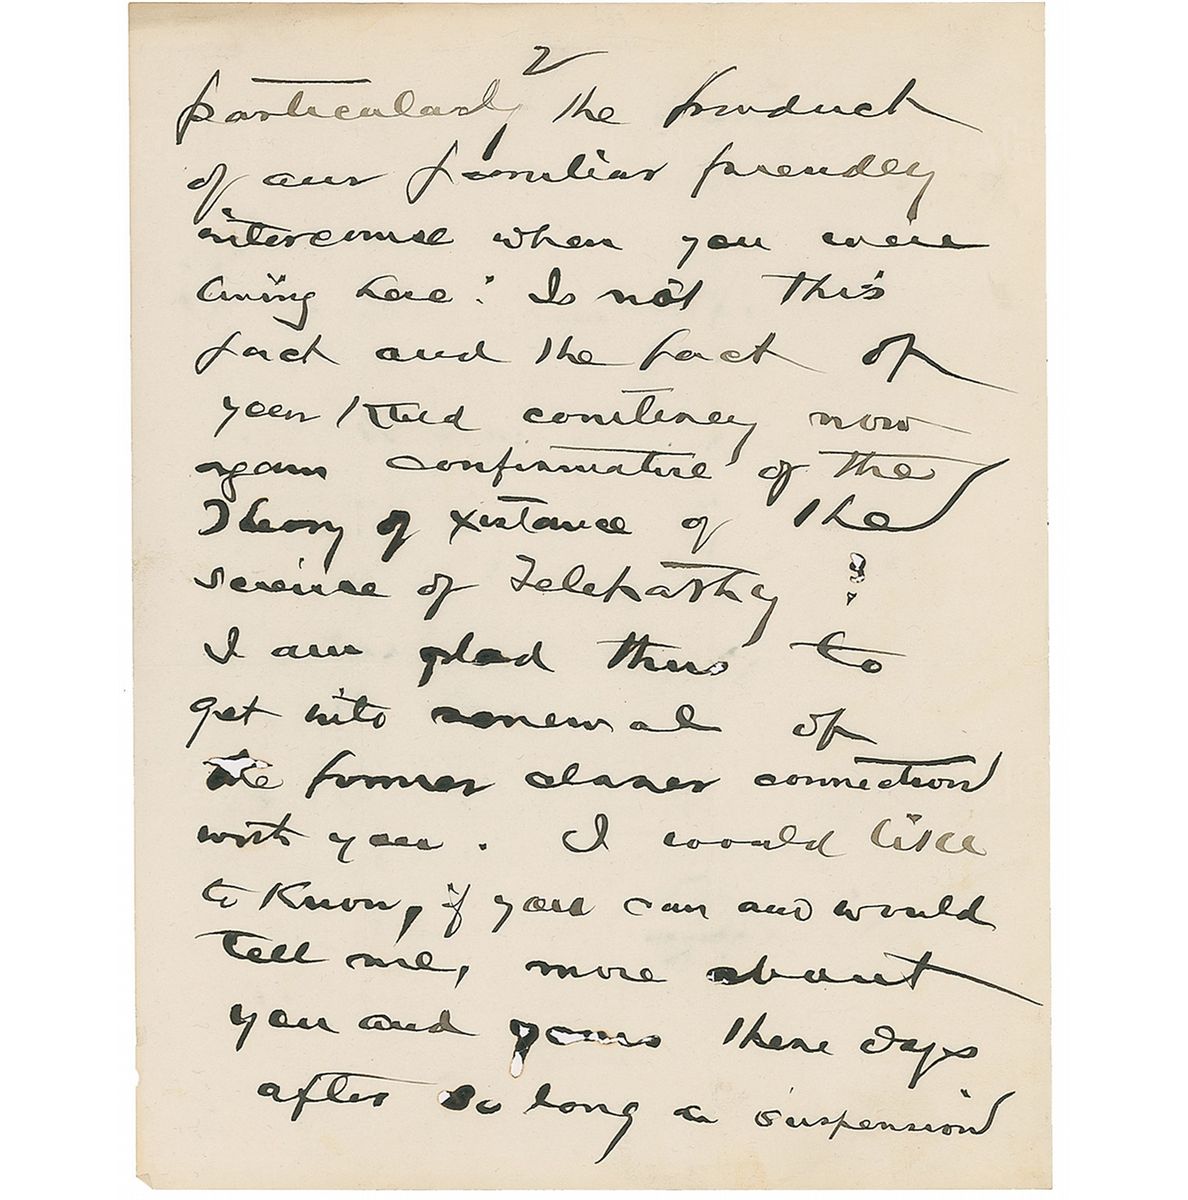 2
particularly the product
of our familiar friendly
intercourse when you were
living here: Is not this
fact and the fact of
your kind courtesy now
again confirmative of the
Theory of xistance of the
science of Telepathy ?
I am glad thus to
get into renewal of
the former closer connection
with you. I would like
to know, if you can and would
tell me, more about
you and yours these days
after so long a suspension